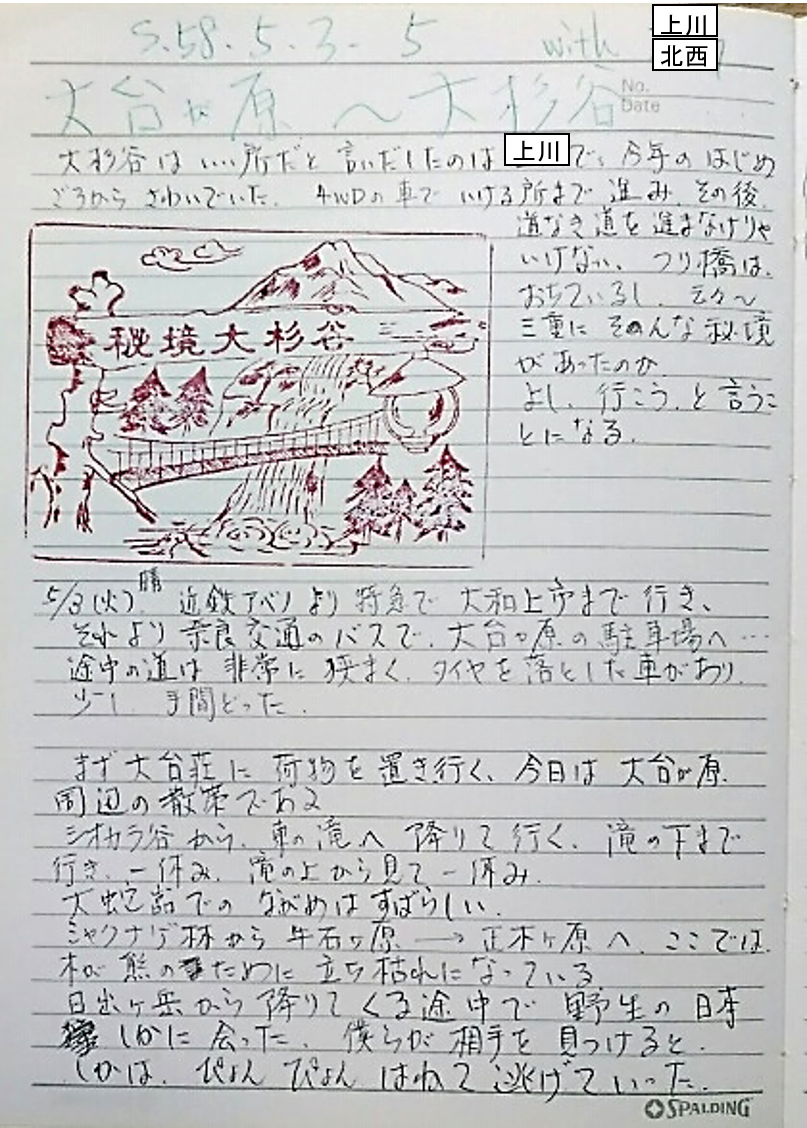 S.58.5.3-5 with 上川
北西
大台ヶ原〜大杉谷
No.
Date
大杉谷は いい所だと 言いだしたのは 上川で、今年のはじめ
ごろから さわいでいた。 4WDの車で いける所まで 進み、その後、
道なき道を進まなけりゃ
いけない、つり橋は、
おちているし、云々〜
三重に そんな秘境
が あったのか
よし、行こう、と言うこ
とになる。
秘境大杉谷
5/3(火) 晴 近鉄アベノより 特急で 大和上市まで行き、
それより 奈良交通のバスで、大台ヶ原の駐車場へ…
途中の道は 非常に 狭まく、タイヤを落とした車があり、
少し 手間どった。
まず大台荘に 荷物を置き行く、今日は 大台ヶ原
周辺の散策である
シオカラ谷から、滝へ 降りて行く、滝の下まで
行き、一休み、滝の上から見て一休み、
大蛇での ながめは すばらしい。
シャクナゲ林から 牛石ヶ原 → 正木ヶ原へ、ここでは、
木が 熊のために 立ち枯れになっている
日出ヶ岳から 降りてくる途中で 野生の日本
しかに 会った、 僕らが 相手を 見つけると、
しかは、ぴょん ぴょん はねて 逃げていった。
SPALDING